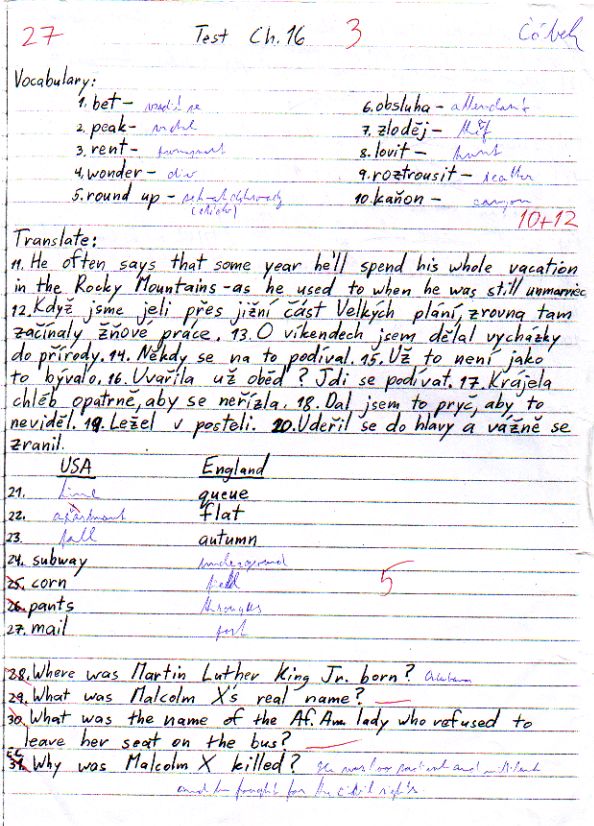 27 Test Ch. 16 3
Vocabulary:
1. bet - 6. obsluha - attendant
2. peak - 7. zloděj -
3. rent - 8. lovit - hunt
4. wonder - div 9. roztrousit -
5. round up - 10. kaňon -
10+12
Translate:
11. He often says that some year he'll spend his whole vacation
in the Rocky Mountains - as he used to when he was still unmarried
12. Když jsme jeli přes jižní část Velkých plání, zrovna tam
začínaly žňové práce. 13. O víkendech jsem dělal vycházky
do přírody. 14. Někdy se na to podíval. 15. Už to není jako
to bývalo. 16. Uvařila už oběd? Jdi se podívat. 17. Krájela
chléb opatrně, aby se neřízla. 18. Dal jsem to pryč, aby to
neviděl. 19. Ležel v posteli. 20. Udeřil se do hlavy a vážně se
zranil.
USA England
21. queue
22. flat
23. fall autumn
24. subway underground
25. corn 5
26. pants
27. mail
28. Where was Martin Luther King Jr. born?
29. What was Malcolm X's real name?
30. What was the name of the Af. Am. lady who refused to
leave her seat on the bus?
31. Why was Malcolm X killed?
and he fought for the civil rights